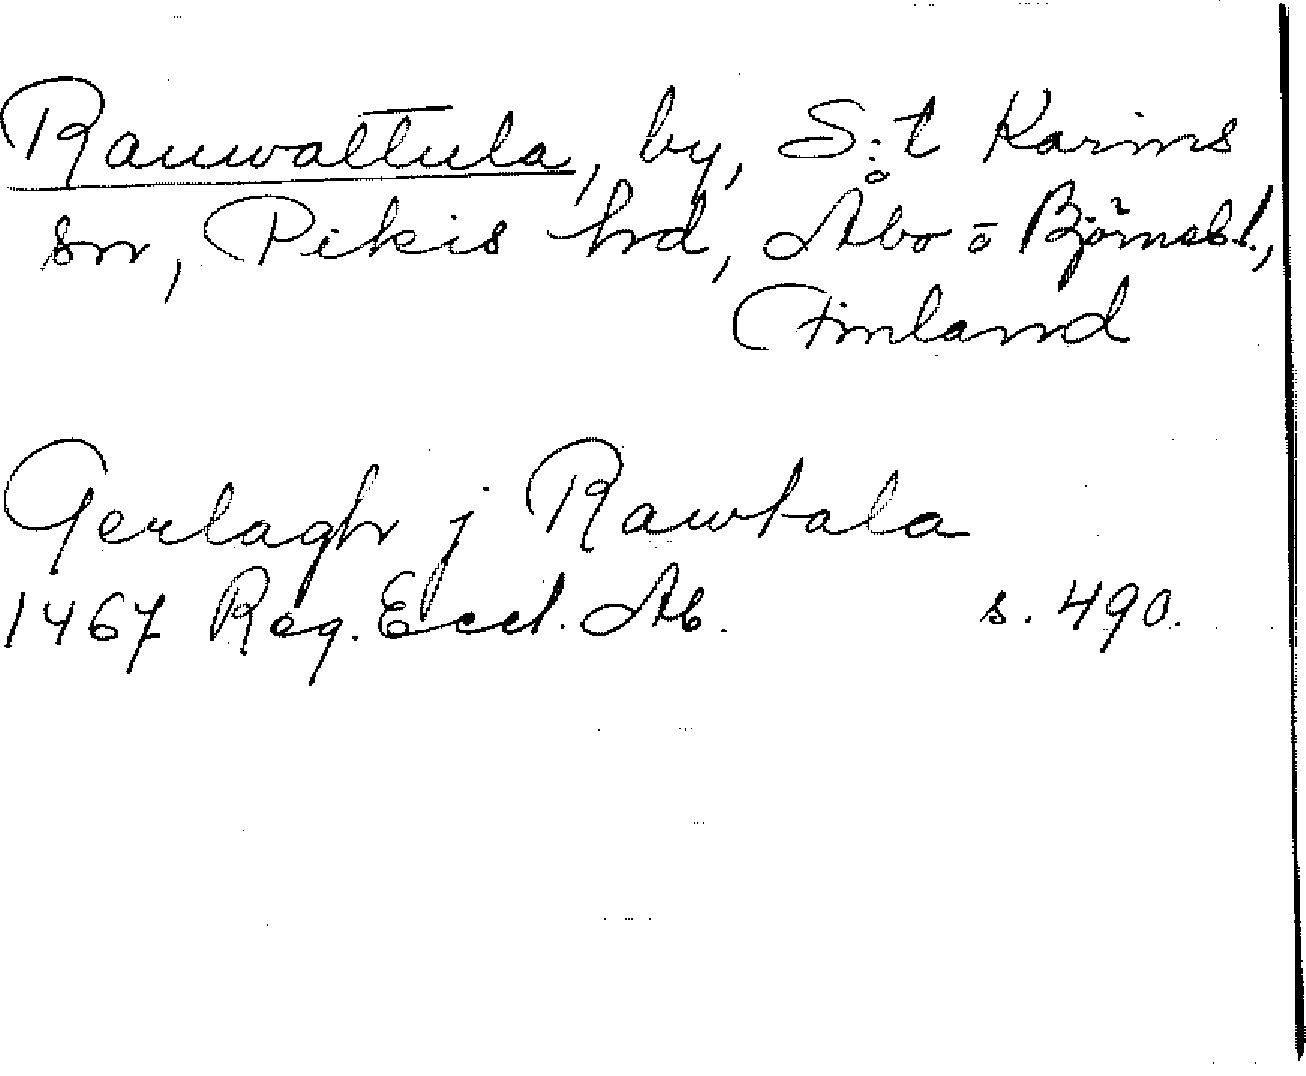 Rauwattula, by, S:t Karins
sn, Pikis hd, Åbo o Björneb.l.,
Finland
Gerlagh j Rawtala
1467 Reg. Eccl. Ab. s. 490.